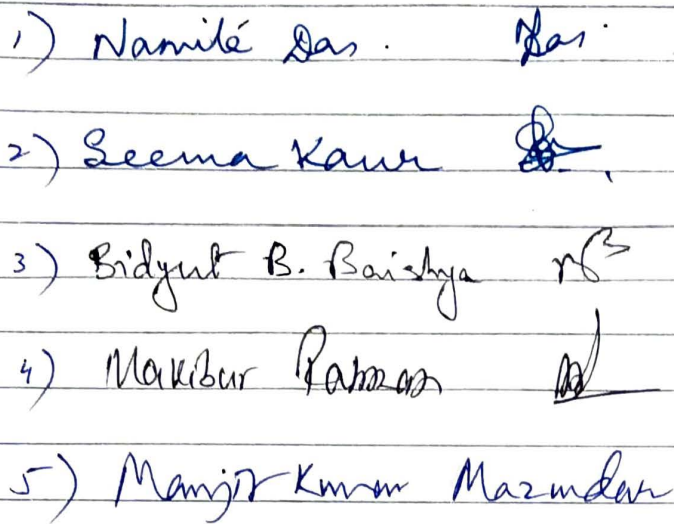 1) Namité Das. Das.
2) Seema Kaur
3) Bidyut B. Baishya
4) Makibur Rahman
5) Manjit Kumar Mazumdar